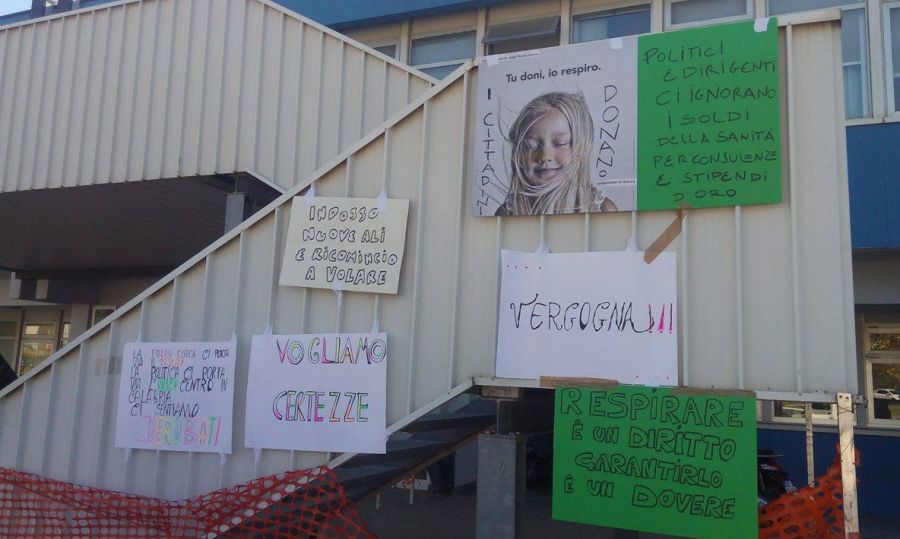 Tu doni, io respiro.
I CITTADINI
DONANO
POLITICI
E DIRIGENTI
CI IGNORANO
I SOLDI
DELLA SANITÁ
PER CONSULENZE
E STIPENDI
D'ORO
INDOSSO
NUOVE ALI
E RICOMINCIO
A VOLARE
VERGOGNA!!!
LA FIBROSI CISTICA CI PORTA
VIA IL
LA POLITICA CI PORTA
VIA L' CENTRO IN
CALABRIA
CI SENTIAMO
DERUBATI
VOGLIAMO
CERTEZZE
RESPIRARE
É UN DIRITTO
GARANTIRLO
É UN DOVERE